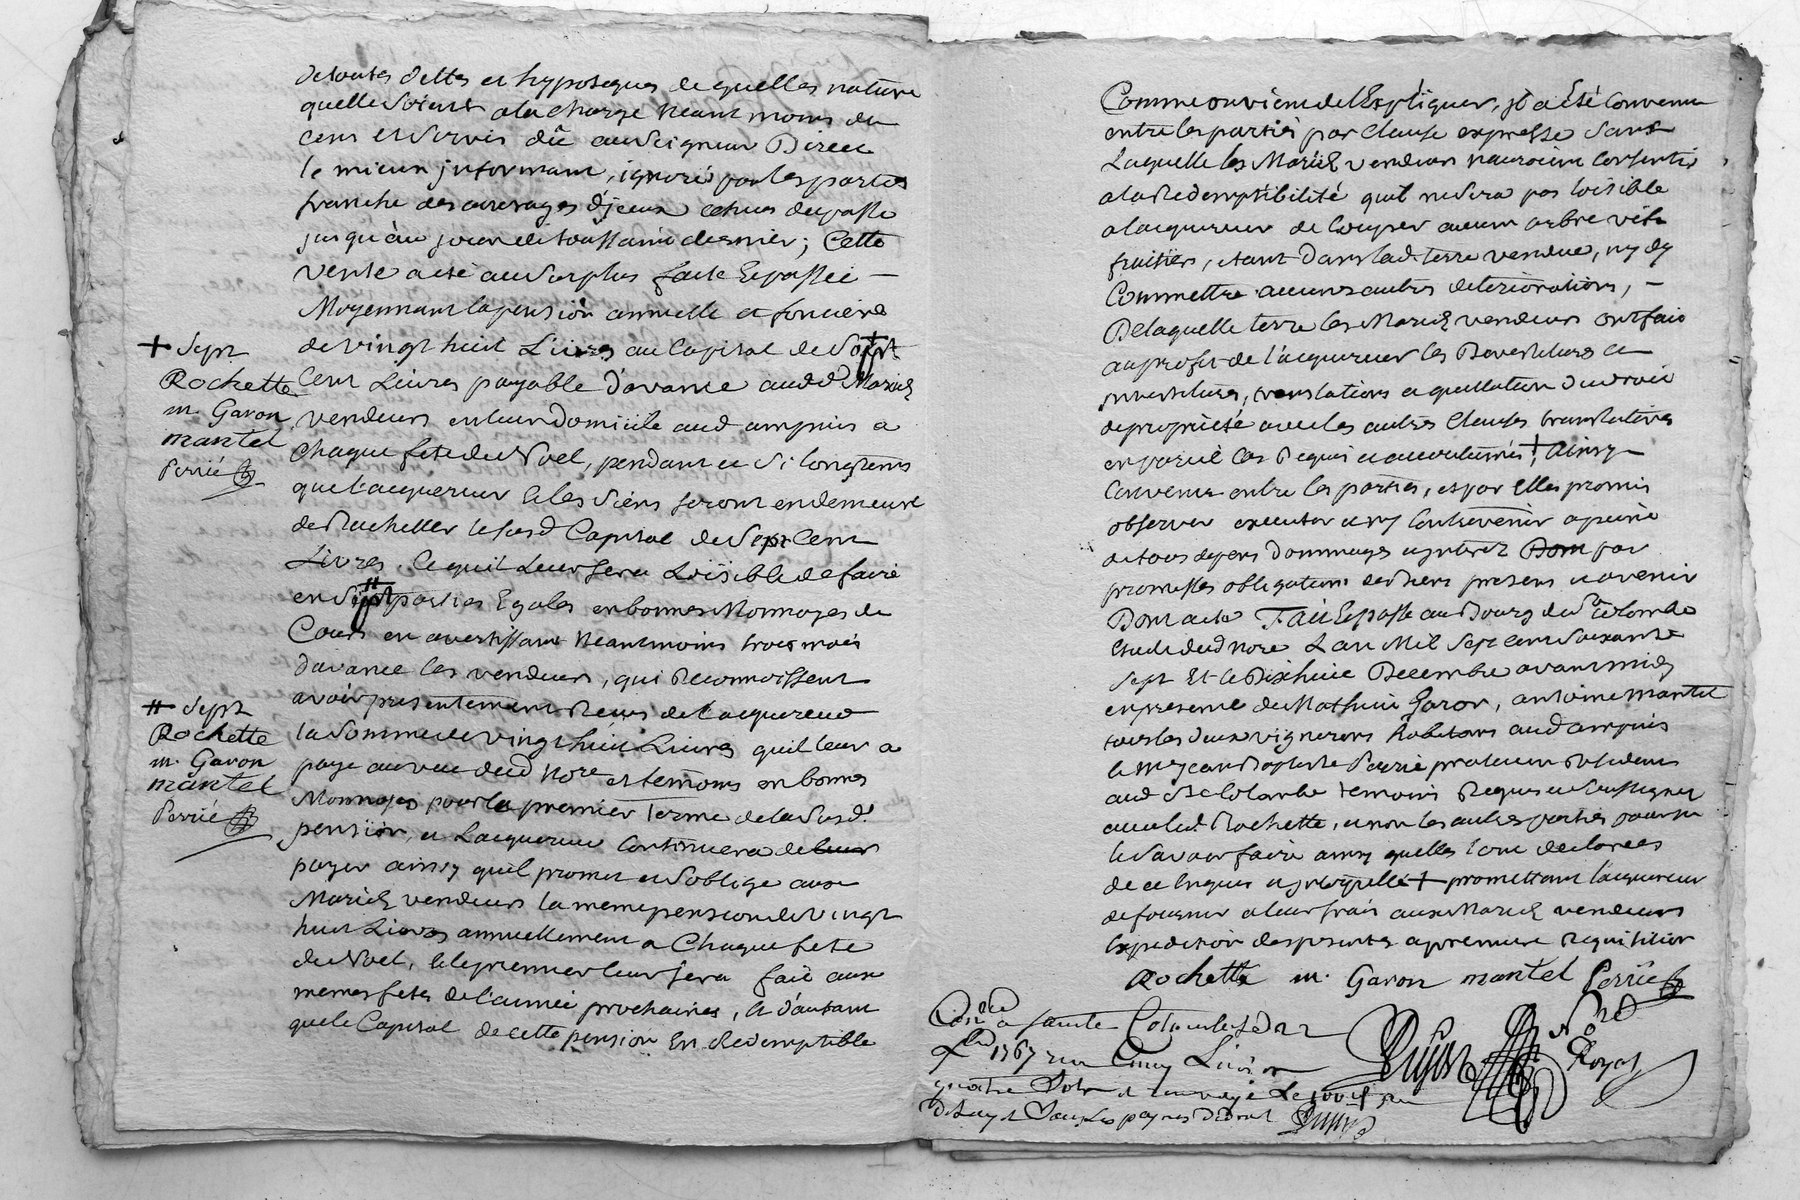 de toutes dettes et hypoteques de quelles nature
quelle soient a la charge neantmoins du
cens et servis dû au seigneur Direct
le mieux informant, ignoré par les parties
franche des arrerages d'jceux echus du passe
jusqu'au jour de toussaint dernier; Cette
vente a eté au surplus faite Et passée —
Moyennant la pension annuelle et fonciere
de vingt huit Livres au Capital de Sept
Cent Livres payable d'avance aud.d Mariés
vendeurs en leur domicile aud ampuis a
Chaque fete de Noel, pendant et si longtems
que l'acquereur et les siens seront en demeure
de Rachetter le susd Capital de Sept Cent
Livres. Ce quil Leur sera Loisible de faire
en Sept parties Egales en bonnes Monnoyes de
Cours en avertissant Neantmoins trois mois
d'avance les vendeurs, qui Reconnoissent
avoir presentement Receus de l'acquereur
la Somme de vingt huit Livres quil leur a
paye au vue dud Nore et temoins en bonnes
Monnoyes pour le premier Terme de la susd.e
pension, et L'acquereur Continuera de leur
payer ainsy quil promet et s'oblige aux
Mariés vendeurs la meme pension de vingt
huit Livres annuellement a Chaque fete
de Noel, et le premier leur sera fait aux
memes fetes de l'année prochaines, et d'autant
que le Capital de cette pension En Redemptible
+ Sept
Rochette
m. Garon
mantel
Perrié
# Sept
Rochette
m. Garon
mantel
Perrié
Comme on vient de l'Expliquer, jl a Eté Convenu
entre les parties par Clause expresse Sans
Laquelle les Mariés vendeurs nauroient Consentis
a la Redemptibilité quil ne Sera pas loisible
a lacquereur de Couper aucun arbre
fruitier, etant dans lad. terre vendue, ny dy
Commettre aucunes autres deteriorations, —
De laquelle terre les Mariés vendeurs ont fait
au profit de l'acquereur les Devestitures et
jnvestitures, translations et du droit
de propriété avec les autres Clauses translatives
en pareil Cas Requis et accoutumés; + Ainsy
Convenu entre les parties, et par Elles promis
observer executer et ny Contrevenir a peine
de tous depens dommages et jnterez Dom par
promesses obligations des biens presens et avenir
Dont acte Fait Et passé au Bourg de Ste Colombe
Etude dud Nore L'an Mil Sept cent Soixante
Sept Et le Dixhuit Decembre avant midy
en presence de Mathieu Garon, antoine mantel
tous les deux vignerons habitans aud ampuis
le Mre jean Baptiste Perrié praticien Residant
aud Ste Colombe temoins Requis et Soussignez
avec led. Rochette, et non les autres parties pour ne
le Savoir faire ainsy quelles l'ont declarées
de ce Enquis et jnterpellé + promettant l'acquereur
de fournir a leur frais aux Mariés vendeurs
Expedition des presentes a premiere Requisition
Rochette m. Garon mantel Perrié
Conlé a Sainte Colombe le 22
Xbre 1767 reçu Cinq Livres
quatre Sols
Nore
Royal